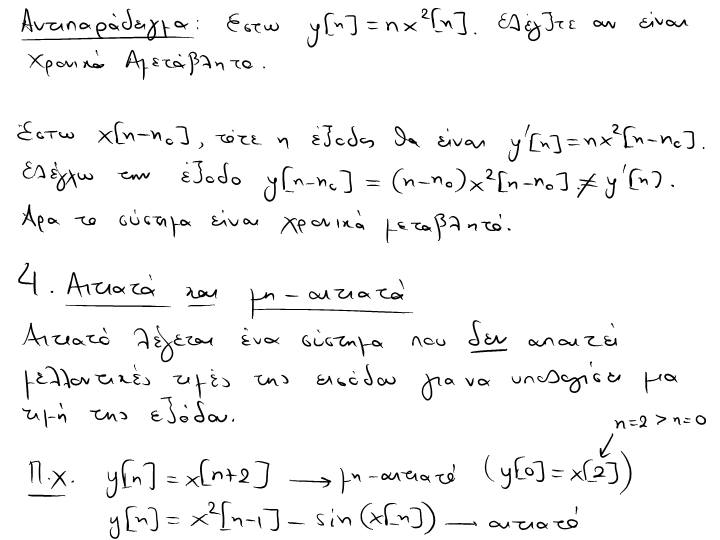 Αντιπαράδειγμα: Έστω y[n] = nx²[n]. Ελέγξτε αν είναι
χρονικά Αμετάβλητο.
Έστω x[n-n₀], τότε η έξοδος θα είναι y'[n] = nx²[n-n₀].
Ελέγχω την έξοδο y[n-n₀] = (n-n₀)x²[n-n₀] ≠ y'[n].
Άρα το σύστημα είναι χρονικά μεταβλητό.
4. Αιτιατά και μη-αιτιατά
Αιτιατό λέγεται ένα σύστημα που δεν απαιτεί
μελλοντικές τιμές της εισόδου για να υπολογίσει μια
τιμή της εξόδου.
n=2 > n=0
Π.χ. y[n] = x[n+2] → μη-αιτιατό (y[0] = x[2])
y[n] = x²[n-1] - sin(x[n]) → αιτιατό